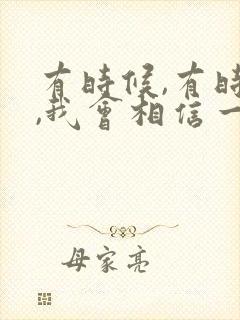 有時候,有時
,我會相信一
母家亮